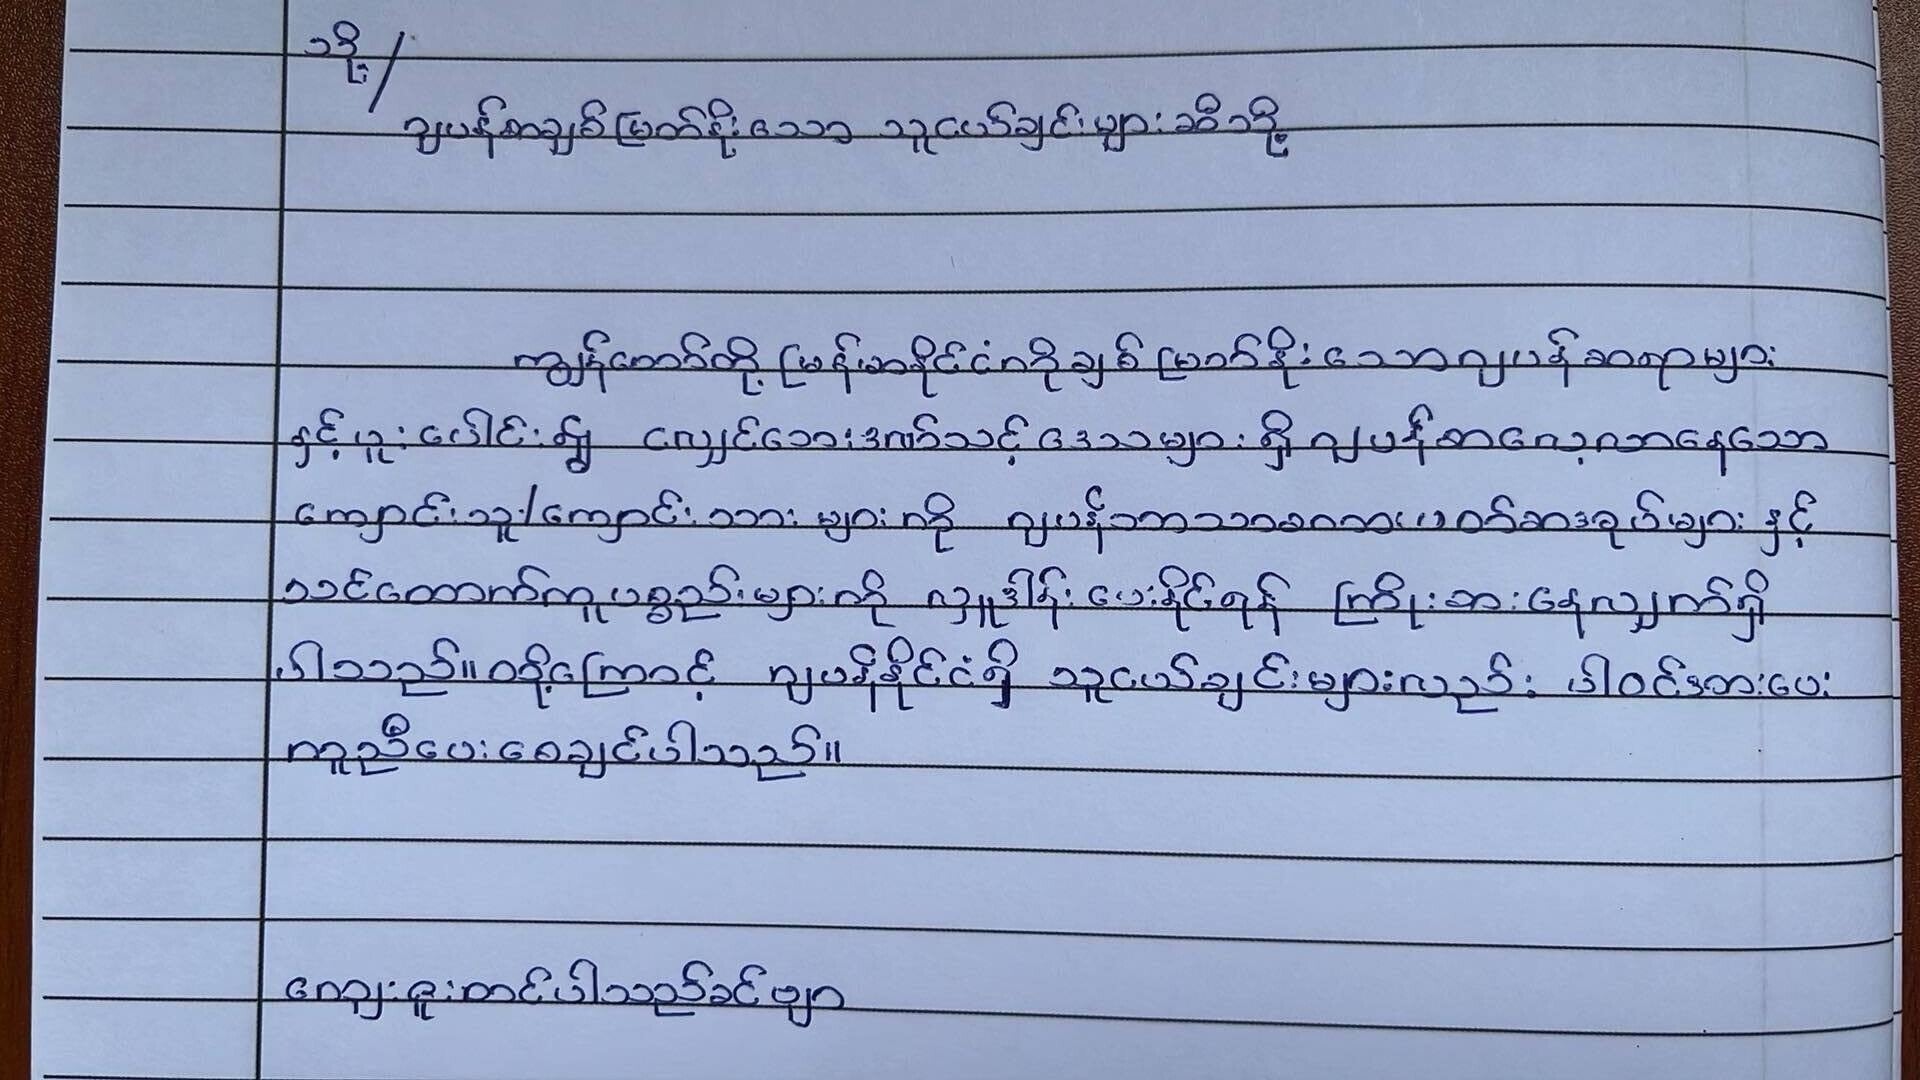 သို့/
ဂျပန်စာချစ်မြတ်နိုးသော သူငယ်ချင်းများဆီသို့
ကျွန်တော်တို့ မြန်မာနိုင်ငံကိုချစ်မြတ်နိုးသောဂျပန်ဆရာများ
နှင့်ပူးပေါင်း၍ လျှင်သေးအလ်သင့်ဒေသများရှိ ဂျပန်စာလေ့လာနေသော
ကျောင်းသူ/ကျောင်းသားများကို ဂျပန်ဘာသာစကားဖတ်စာအုပ်များနှင့်
သင်ထောက်ကူပစ္စည်းများကို လှူဒါန်းပေးနိုင်ရန် ကြိုးစားနေလျှက်ရှိ
ပါသည်။ ထို့ကြောင့် ဂျပန်နိုင်ငံရှိ သူငယ်ချင်းများလည်း ပါဝင်အားပေး
ကူညီပေးစေချင်ပါသည်။
ကျေးဇူးတင်ပါသည်ခင်ဗျာ